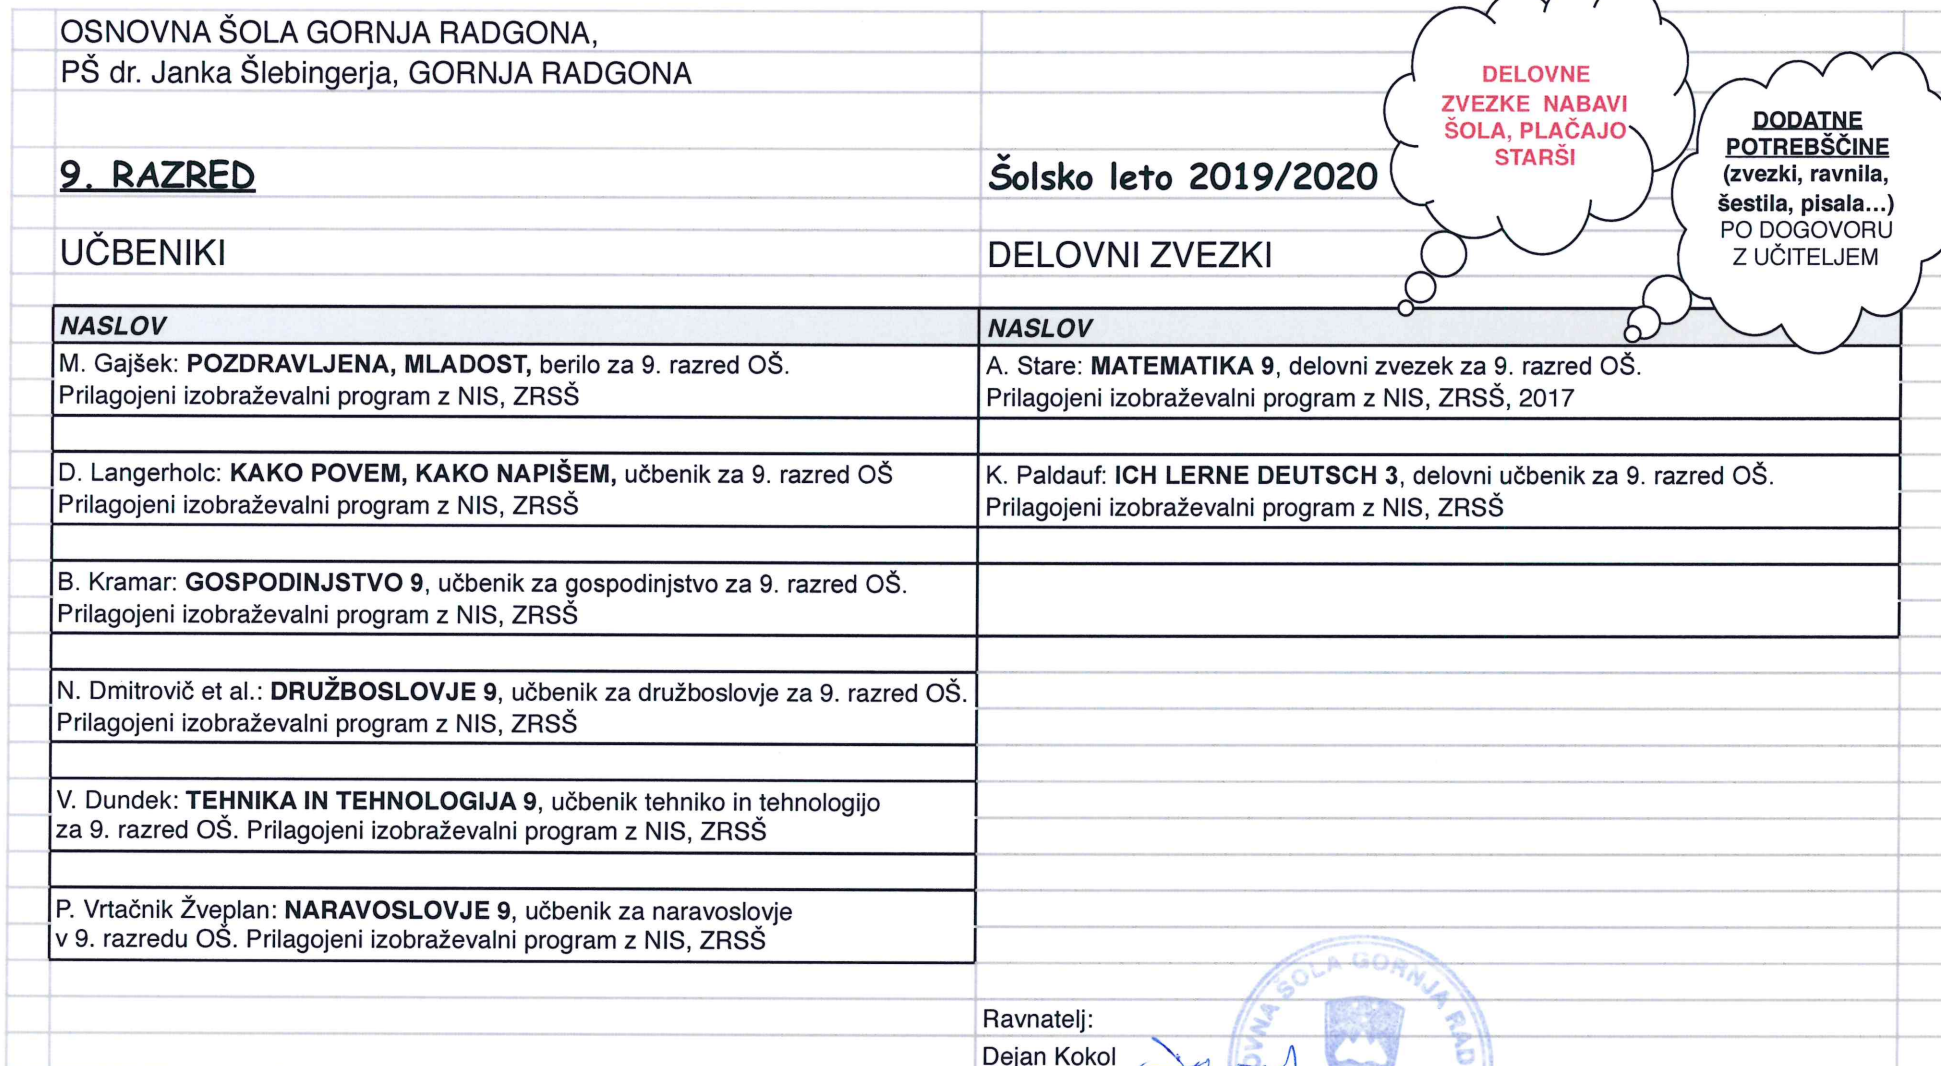 OSNOVNA ŠOLA GORNJA RADGONA,
PŠ dr. Janka Šlebingerja, GORNJA RADGONA
DELOVNE
ZVEZKE NABAVI
ŠOLA, PLAČAJO
STARŠI
DODATNE
POTREBŠČINE
(zvezki, ravnila,
šestila, pisala...)
PO DOGOVORU
Z UČITELJEM
9. RAZRED
Šolsko leto 2019/2020
UČBENIKI
DELOVNI ZVEZKI
NASLOV
M. Gajšek: POZDRAVLJENA, MLADOST, berilo za 9. razred OŠ.
Prilagojeni izobraževalni program z NIS, ZRSŠ
D. Langerholc: KAKO POVEM, KAKO NAPIŠEM, učbenik za 9. razred OŠ
Prilagojeni izobraževalni program z NIS, ZRSŠ
B. Kramar: GOSPODINJSTVO 9, učbenik za gospodinjstvo za 9. razred OŠ.
Prilagojeni izobraževalni program z NIS, ZRSŠ
N. Dmitrovič et al.: DRUŽBOSLOVJE 9, učbenik za družboslovje za 9. razred OŠ.
Prilagojeni izobraževalni program z NIS, ZRSŠ
V. Dundek: TEHNIKA IN TEHNOLOGIJA 9, učbenik tehniko in tehnologijo
za 9. razred OŠ. Prilagojeni izobraževalni program z NIS, ZRSŠ
P. Vrtačnik Žveplan: NARAVOSLOVJE 9, učbenik za naravoslovje
v 9. razredu OŠ. Prilagojeni izobraževalni program z NIS, ZRSŠ
NASLOV
A. Stare: MATEMATIKA 9, delovni zvezek za 9. razred OŠ.
Prilagojeni izobraževalni program z NIS, ZRSŠ, 2017
K. Paldauf: ICH LERNE DEUTSCH 3, delovni učbenik za 9. razred OŠ.
Prilagojeni izobraževalni program z NIS, ZRSŠ
Ravnatelj:
Dejan Kokol
OVNA ŠOLA GORNJA RAD